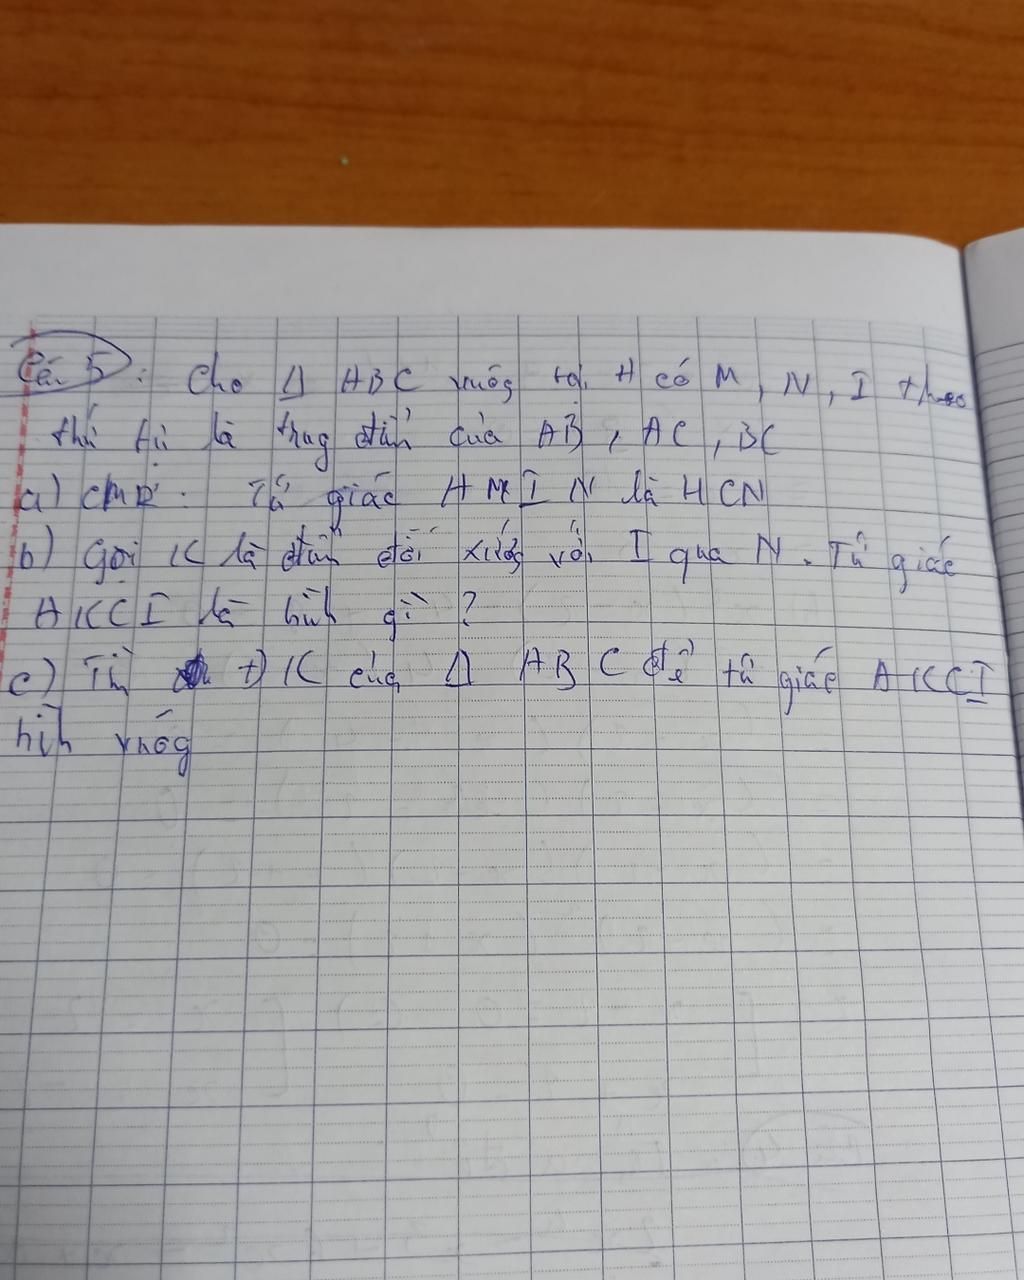 Câu 5: Cho Δ ABC vuông tại A có M, N, I theo
thứ tự là trung điểm của AB, AC, BC
a) CMR: Tứ giác AMIN là HCN
b) Gọi K là điểm đối xứng với I qua N. Tứ giác
AKCI là hình gì?
c) Tìm đk của Δ ABC để tứ giác AKCI
hình vuông